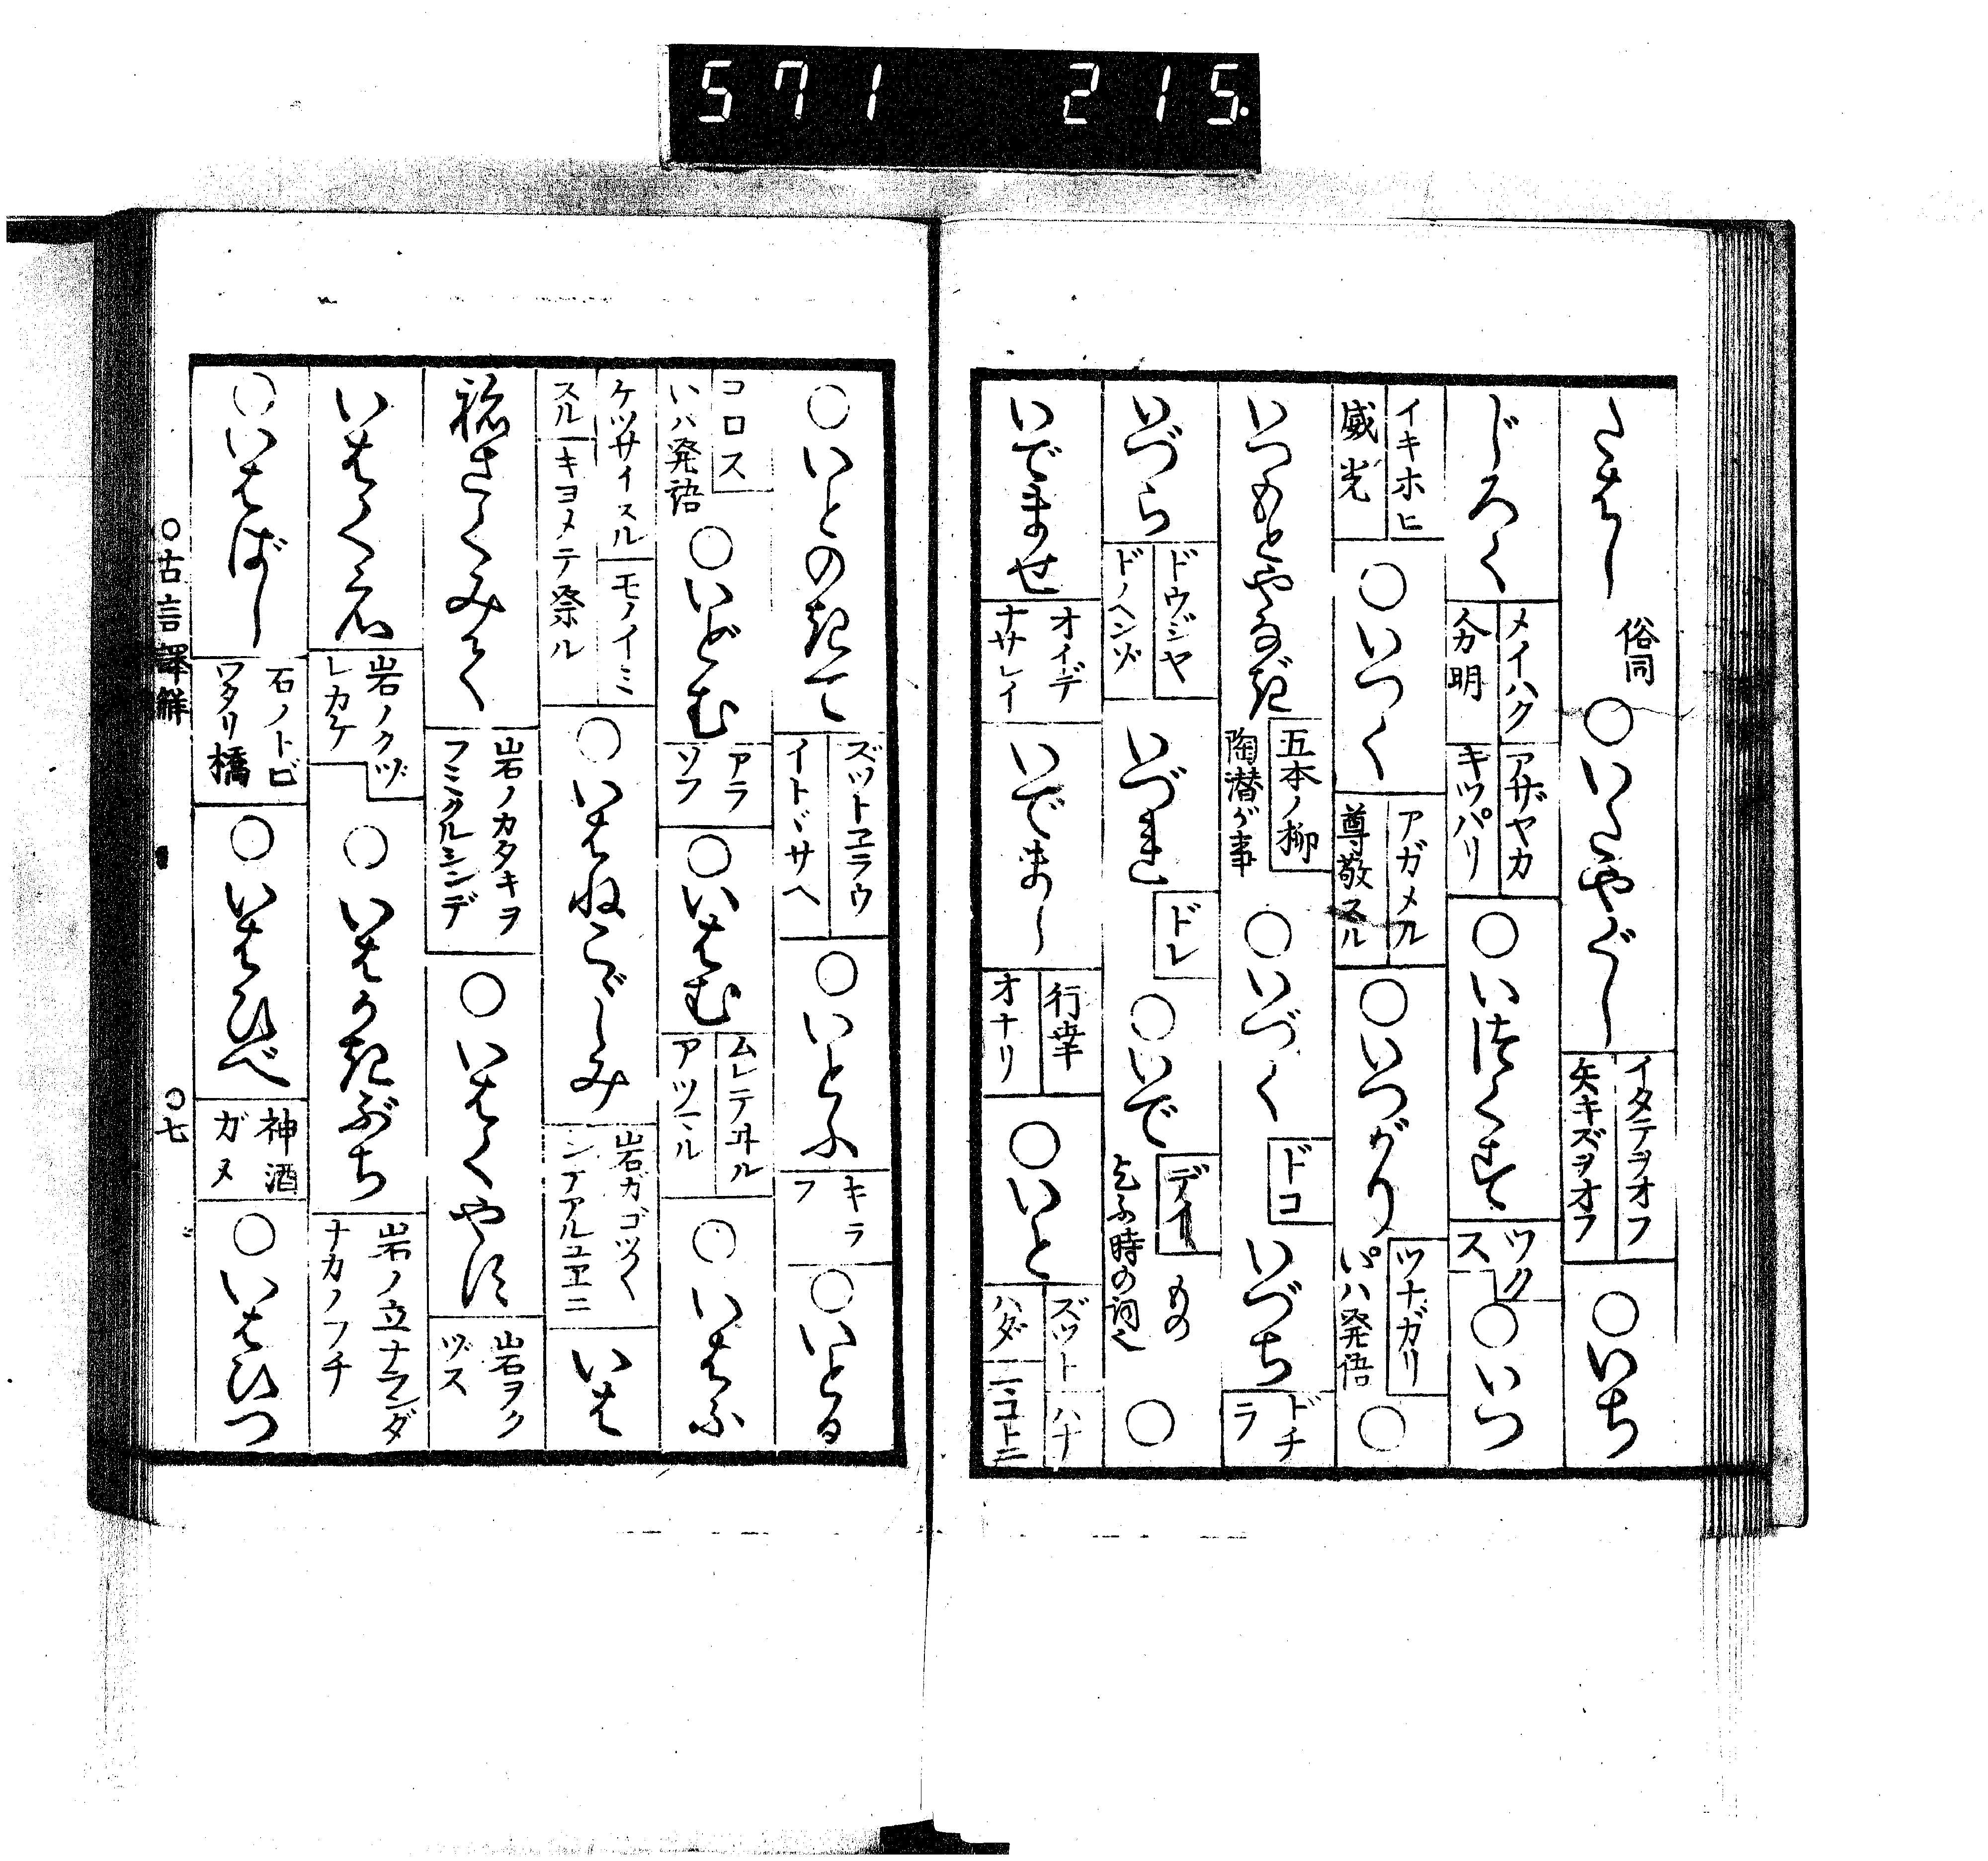 571 215.
たはし 俗同 ○いたやぐし イタテヲオフ 矢キズヲオフ ○いち
じろく メイハク 分明 アザヤカ キツパリ ○いはくす ツク ス ○いつ
イキホヒ 威光 ○いつく アガメル 尊敬スル ○いつがり ツナガリ いハ発語 ○
いつもとやなぎ 五本ノ柳 陶潜が事 ○いづく ドコ いづち ドチ ラ
いづら ドウジヤ ドノヘンゾ いづれ ドレ ○いで デイ もの 乞ふ時の詞也 ○
いでませ オイデ ナサレイ いでまし 行幸 オナリ ○いと ズツト ハナ ハダ ニコトニ
○いとのきて ズツトヱラウ イトヾサヘ ○いとふ キラ フ ○いとる
コロス いハ発語 ○いどむ アラ ソフ ○いはむ ムレテヰル アツマル ○いはふ
ケツサイスル モノイミ スル キヨメテ祭ル ○いはねこゞしみ 岩ガゴツ〱 シテアルユヱニ いは
ねさくみて 岩ノカタキヲ フミクルシンデ ○いはくやす 岩ヲク ヅス
いはくえ 岩ノクヅ レカケ ○いはがきぶち 岩ノ立ナランダ ナカノフチ
○いはばし 石ノトビ ワタリ橋 ○いはひべ 神酒 ガメ ○いはひつ
○古言譯解 ○七